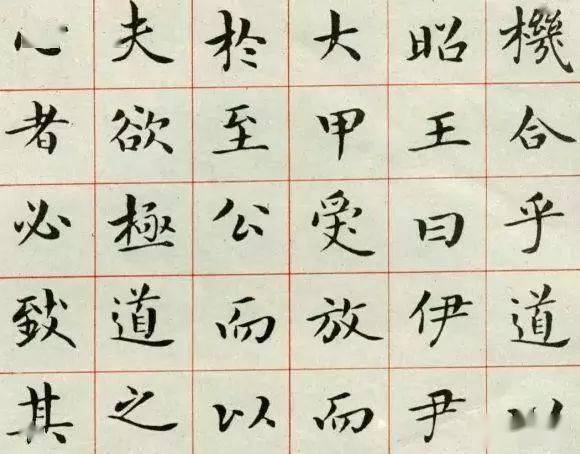 機合乎道以
昭王曰伊尹
大甲受放而
於至公而以
夫欲極道之
心者必致其